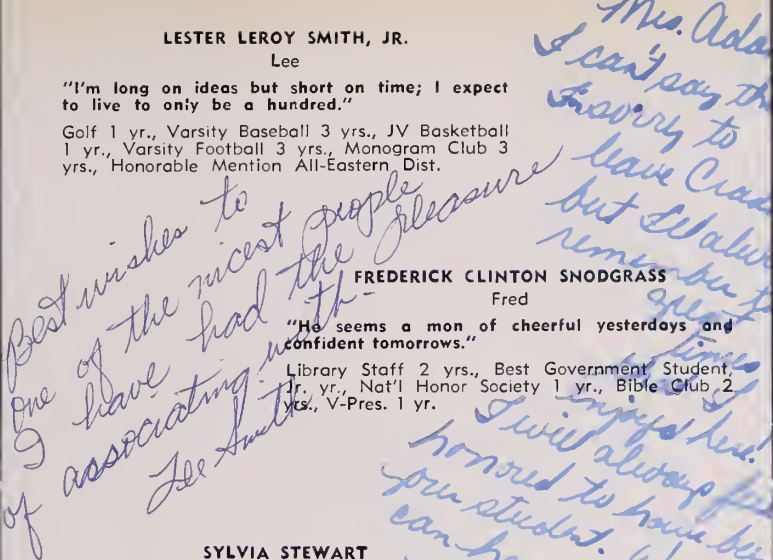 LESTER LEROY SMITH, JR.
Lee
"I'm long on ideas but short on time; I expect
to live to only be a hundred."
Golf 1 yr., Varsity Baseball 3 yrs., JV Basketball
1 yr., Varsity Football 3 yrs., Monogram Club 3
yrs., Honorable Mention All-Eastern Dist.
Best wishes to
one of the nicest people
I have had the pleasure
of associating with-
Lee Smith
FREDERICK CLINTON SNODGRASS
Fred
"He seems a mon of cheerful yesterdays and
confident tomorrows."
Library Staff 2 yrs., Best Government Student,
Jr. yr., Nat'l Honor Society 1 yr., Bible Club 2
yrs., V-Pres. 1 yr.
Mrs.
I can't say
I'm sorry to
leave
but I'll
remember
great
times
I
enjoyed here.
I will always
honored to have
your student.
can
SYLVIA STEWART